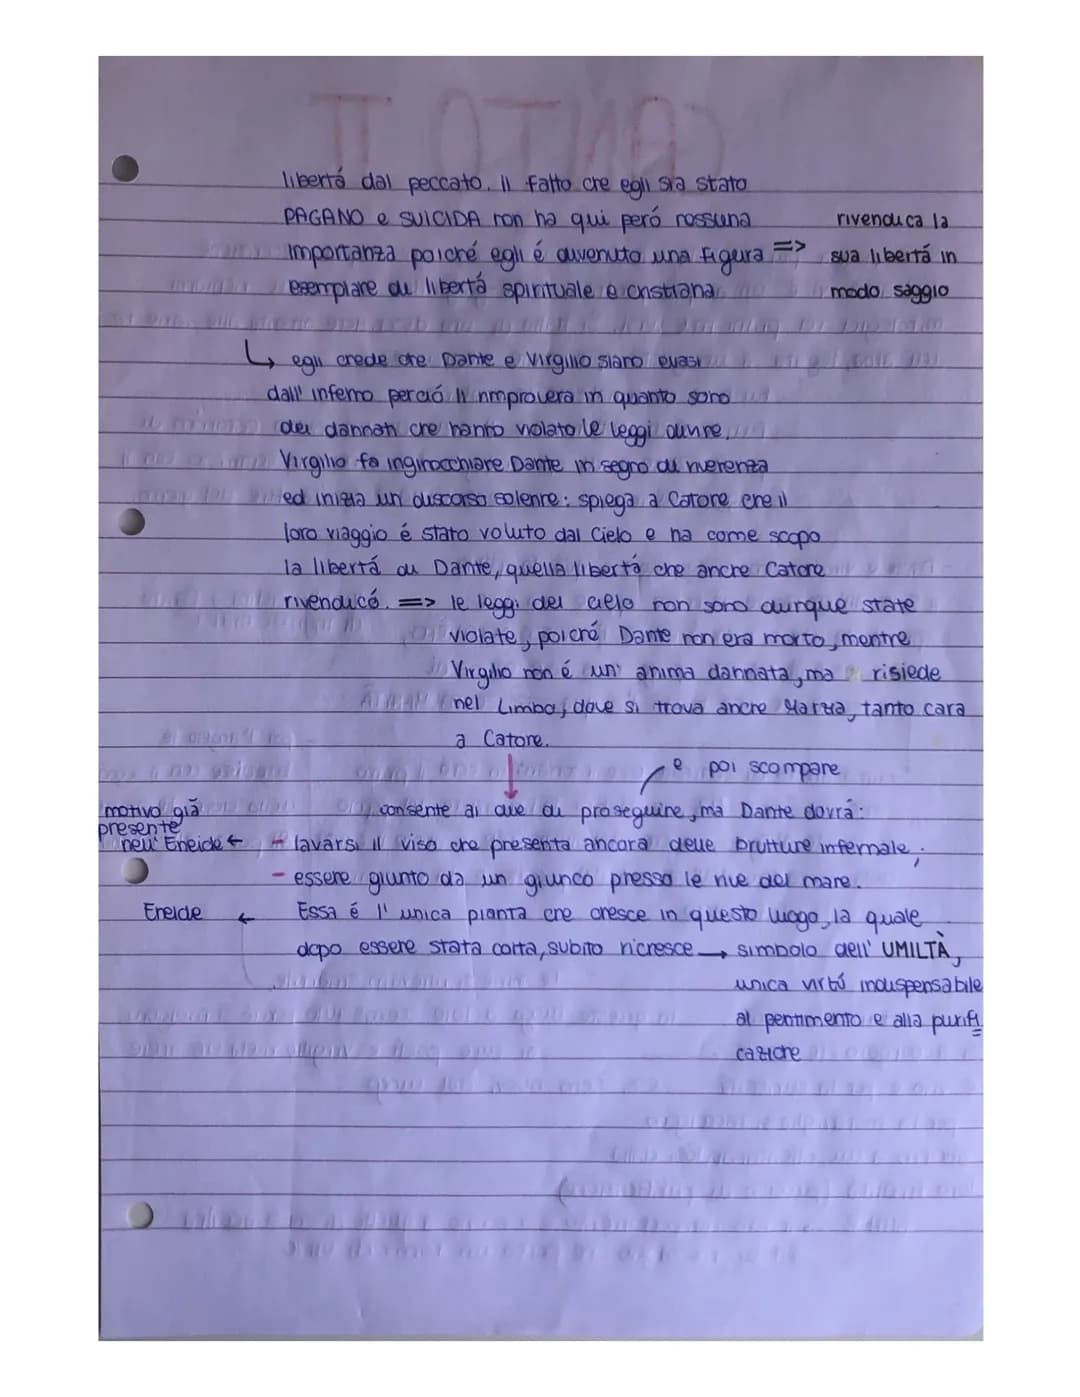 libertá dal peccato. Il fatto che egli sia stato
PAGANO e SUICIDA non ha qui peró nessuna
importanza poiché egli é divenuto una figura =>
esemplare di libertá spirituale e cristiana
rivendica la
sua libertá in
modo saggio
↳ egli crede che Dante e Virgilio siano evasi
dall' inferno perció li rimprovera in quanto sono
dei dannati che hanno violato le leggi divine.
Virgilio fa inginocchiare Dante in segno di riverenza
ed inizia un discorso solenne: spiega a Catone che il
loro viaggio é stato voluto dal Cielo e ha come scopo
la libertá di Dante, quella libertá che anche Catone
rivendicó. => le leggi del cielo non sono dunque state
violate, poiché Dante non era morto, mentre
Virgilio non é un' anima dannata, ma risiede
nel Limbo, dove si trova anche Marzia, tanto cara
a Catone.
e poi scompare
consente ai due di proseguire, ma Dante dovrá:
motivo giá
presente
nell' Eneide ← - lavarsi il viso che presenta ancora delle brutture infernale;
- essere giunto da un giunco presso le rive del mare.
Eneide ← Essa é l' unica pianta che cresce in questo luogo, la quale
dopo essere stata colta, subito ricresce → simbolo dell' UMILTÀ,
unica virtú indispensabile
al pentimento e alla purifi
cazione